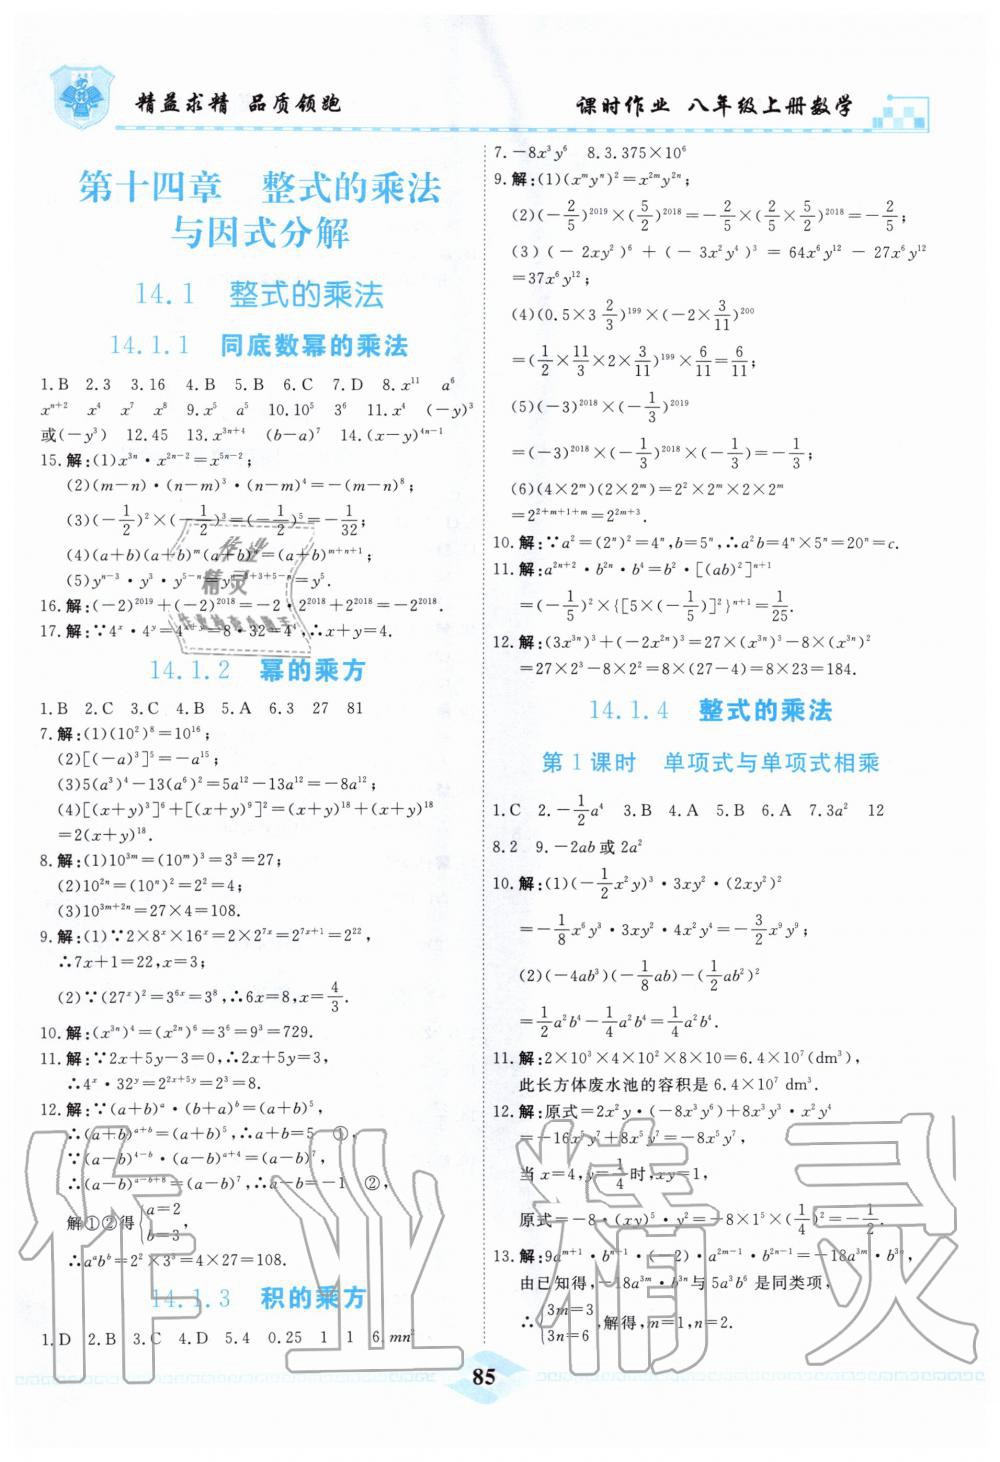 精益求精 品质领跑
课时作业 八年级上册数学
第十四章 整式的乘法
与因式分解
14.1 整式的乘法
14.1.1 同底数幂的乘法
1.B 2.3 3.16 4.B 5.B 6.C 7.D 8.x¹¹ a⁶
xⁿ⁺² x⁴ x⁷ x⁸ 9.x⁵ a⁵ 10.10⁵ 3⁶ 11.x⁴ (-y)³
或(-y³) 12.45 13.x³ⁿ⁺⁴ (b-a)⁷ 14.(x-y)⁴ⁿ⁻¹
15.解:(1)x³ⁿ·x²ⁿ⁻²=x⁵ⁿ⁻²;
(2)(m-n)·(n-m)³·(n-m)⁴=-(m-n)⁸;
(3)(-1/2)²×(-1/2)³=(-1/2)⁵=-1/32;
(4)(a+b)(a+b)ᵐ(a+b)ⁿ=(a+b)ᵐ⁺ⁿ⁺¹;
(5)yⁿ⁻³·y³·y⁵⁻ⁿ=yⁿ⁻³⁺³⁺⁵⁻ⁿ=y⁵.
16.解:(-2)²⁰¹⁹+(-2)²⁰¹⁸=-2·2²⁰¹⁸+2²⁰¹⁸=-2²⁰¹⁸.
17.解:∵4ˣ·4ʸ=4ˣ⁺ʸ=8·32=4⁴,∴x+y=4.
14.1.2 幂的乘方
1.B 2.C 3.C 4.B 5.A 6.3 27 81
7.解:(1)(10²)⁸=10¹⁶;
(2)[(-a)³]⁵=-a¹⁵;
(3)5(a³)⁴-13(a⁶)²=5a¹²-13a¹²=-8a¹²;
(4)[(x+y)³]⁶+[(x+y)⁹]²=(x+y)¹⁸+(x+y)¹⁸
=2(x+y)¹⁸.
8.解:(1)10³ᵐ=(10ᵐ)³=3³=27;
(2)10²ⁿ=(10ⁿ)²=2²=4;
(3)10³ᵐ⁺²ⁿ=27×4=108.
9.解:(1)∵2×8ˣ×16ˣ=2×2⁷ˣ=2⁷ˣ⁺¹=2²²,
∴7x+1=22,x=3;
(2)∵(27ˣ)²=3⁶ˣ=3⁸,∴6x=8,x=4/3.
10.解:(x³ⁿ)⁴=(x²ⁿ)⁶=3⁶=9³=729.
11.解:∵2x+5y-3=0,∴2x+5y=3,
∴4ˣ·32ʸ=2²ˣ⁺⁵ʸ=2³=8.
12.解:∵(a+b)ᵃ·(b+a)ᵇ=(a+b)⁵,
∴(a+b)ᵃ⁺ᵇ=(a+b)⁵,∴a+b=5 ①,
∵(a-b)⁴⁻ᵇ·(a-b)ᵃ⁺⁴=(a-b)⁷,
∴(a-b)ᵃ⁻ᵇ⁺⁸=(a-b)⁷,∴a-b=-1 ②,
解①②得{a=2
b=3,
∴aᵃbᵇ=2²×3³=4×27=108.
14.1.3 积的乘方
1.D 2.B 3.C 4.D 5.4 0.25 1 1 6.mn²
7.-8x³y⁶ 8.3.375×10⁶
9.解:(1)(xᵐyⁿ)²=x²ᵐy²ⁿ;
(2)(-2/5)²⁰¹⁹×(5/2)²⁰¹⁸=-2/5×(2/5×5/2)²⁰¹⁸=-2/5;
(3)(-2xy²)⁶+(-3x²y⁴)³=64x⁶y¹²-27x⁶y¹²
=37x⁶y¹²;
(4)(0.5×3 2/3)¹⁹⁹×(-2×3/11)²⁰⁰
=(1/2×11/3×2×3/11)¹⁹⁹×6/11=6/11;
(5)(-3)²⁰¹⁸×(-1/3)²⁰¹⁹
=(-3)²⁰¹⁸×(-1/3)²⁰¹⁸×(-1/3)=-1/3;
(6)(4×2ᵐ)(2×2ᵐ)=2²×2ᵐ×2×2ᵐ
=2²⁺ᵐ⁺¹⁺ᵐ=2²ᵐ⁺³.
10.解:∵a²=(2ⁿ)²=4ⁿ,b=5ⁿ,∴a²b=4ⁿ×5ⁿ=20ⁿ=c.
11.解:a²ⁿ⁺²·b²ⁿ·b⁴=b²·[(ab)²]ⁿ⁺¹
=(-1/5)²×{[5×(-1/5)]²}ⁿ⁺¹=1/25.
12.解:(3x³ⁿ)³+(-2x²ⁿ)³=27×(x³ⁿ)³-8×(x³ⁿ)²
=27×2³-8×2²=8×(27-4)=8×23=184.
14.1.4 整式的乘法
第1课时 单项式与单项式相乘
1.C 2.-1/2a⁴ 3.B 4.A 5.B 6.A 7.3a² 12
8.2 9.-2ab或2a²
10.解:(1)(-1/2x²y)³·3xy²·(2xy²)²
=-1/8x⁶y³·3xy²·4x²y⁴=-3/2x⁹y⁹;
(2)(-4ab³)(-1/8ab)-(1/2ab²)²
=1/2a²b⁴-1/4a²b⁴=1/4a²b⁴.
11.解:2×10³×4×10²×8×10=6.4×10⁷(dm³),
此长方体废水池的容积是6.4×10⁷ dm³.
12.解:原式=2x²y·(-8x³y⁶)+8x³y³·x²y⁴
=-16x⁵y⁷+8x⁵y⁷=-8x⁵y⁷,
当x=4,y=1/4时,xy=1,
原式=-8·(xy)⁵·y²=-8×1⁵×(1/4)²=-1/2.
13.解:9aᵐ⁺¹·bⁿ⁺¹·(-2)·a²ᵐ⁻¹·b²ⁿ⁻¹=-18a³ᵐ·b³ⁿ
由已知得,-18a³ᵐ·b³ⁿ与5a³b⁶是同类项,
∴{3m=3
3n=6,解得,m=1,n=2.
85
作业精灵